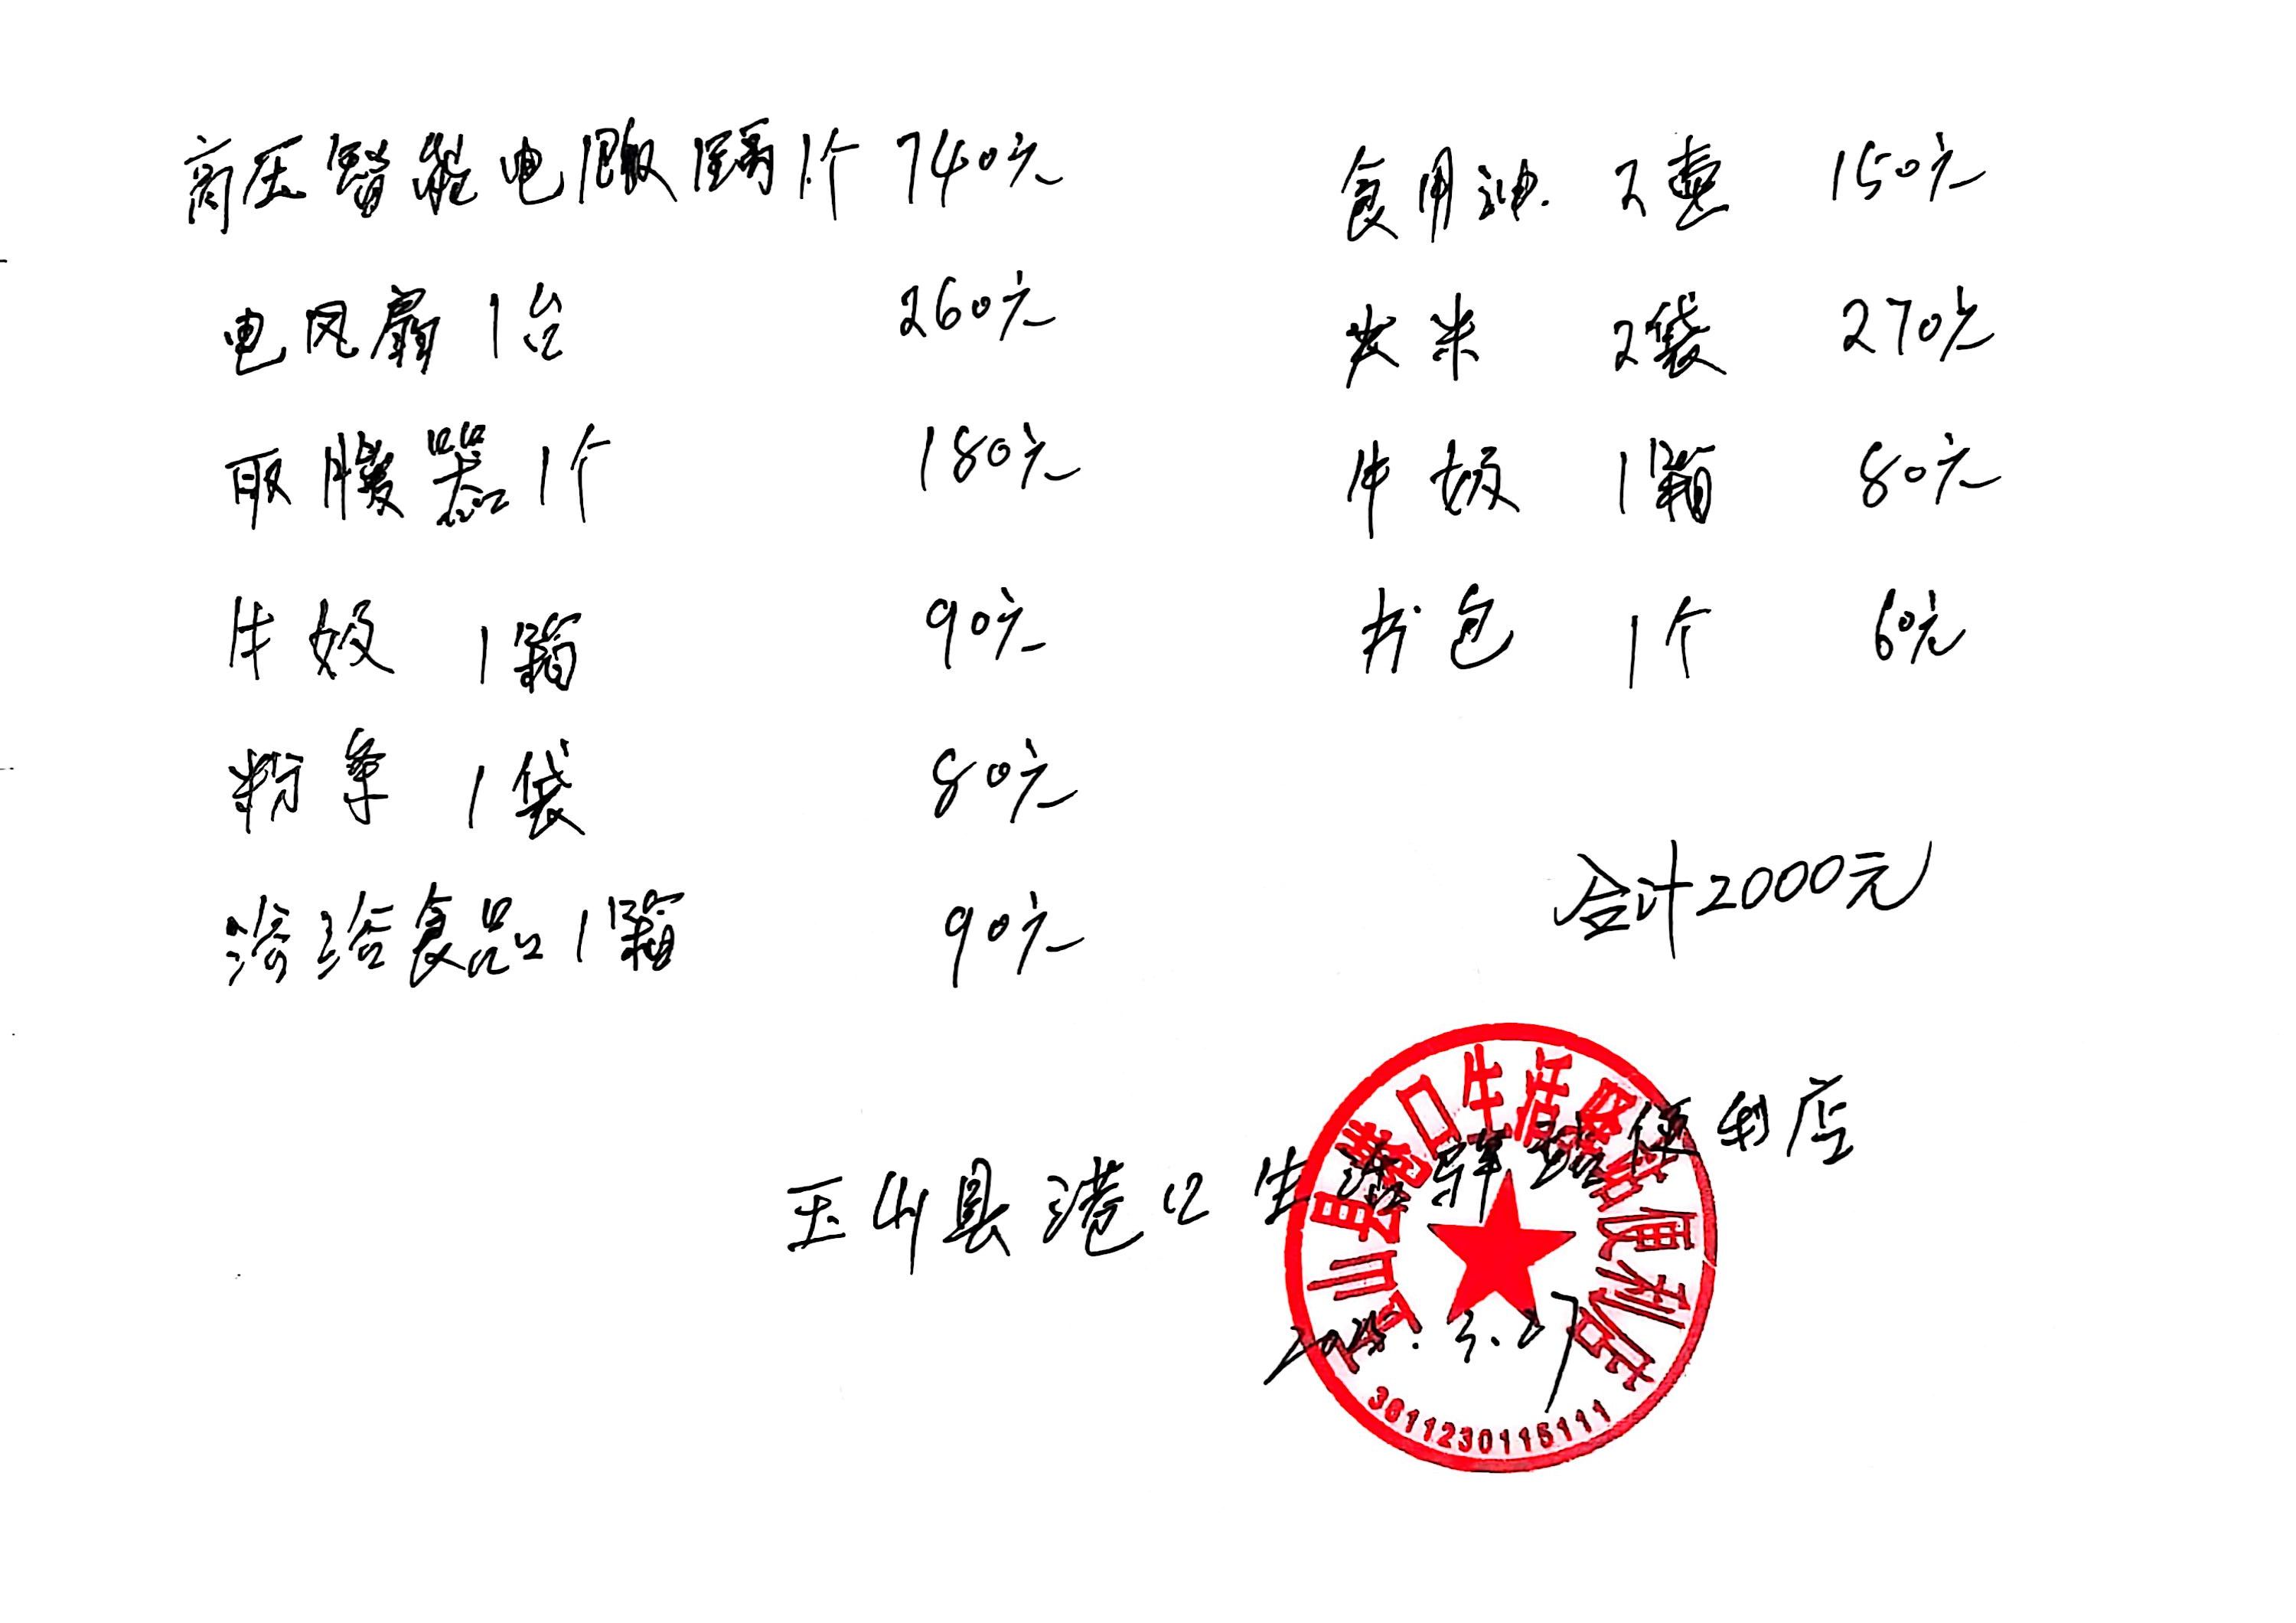 高压智能电饭锅1个 740元
电风扇 1台 260元
取暖器 1个 180元
牛奶 1箱 90元
粉条 1袋 80元
洽洽食品 1箱 90元
食用油 2壶 150元
大米 2袋 270元
牛奶 1箱 80元
书包 1个 60元
合计2000元
玉山县港口生活驿站便利店
3.27
玉山县港口生活驿站便利店
3611230115111